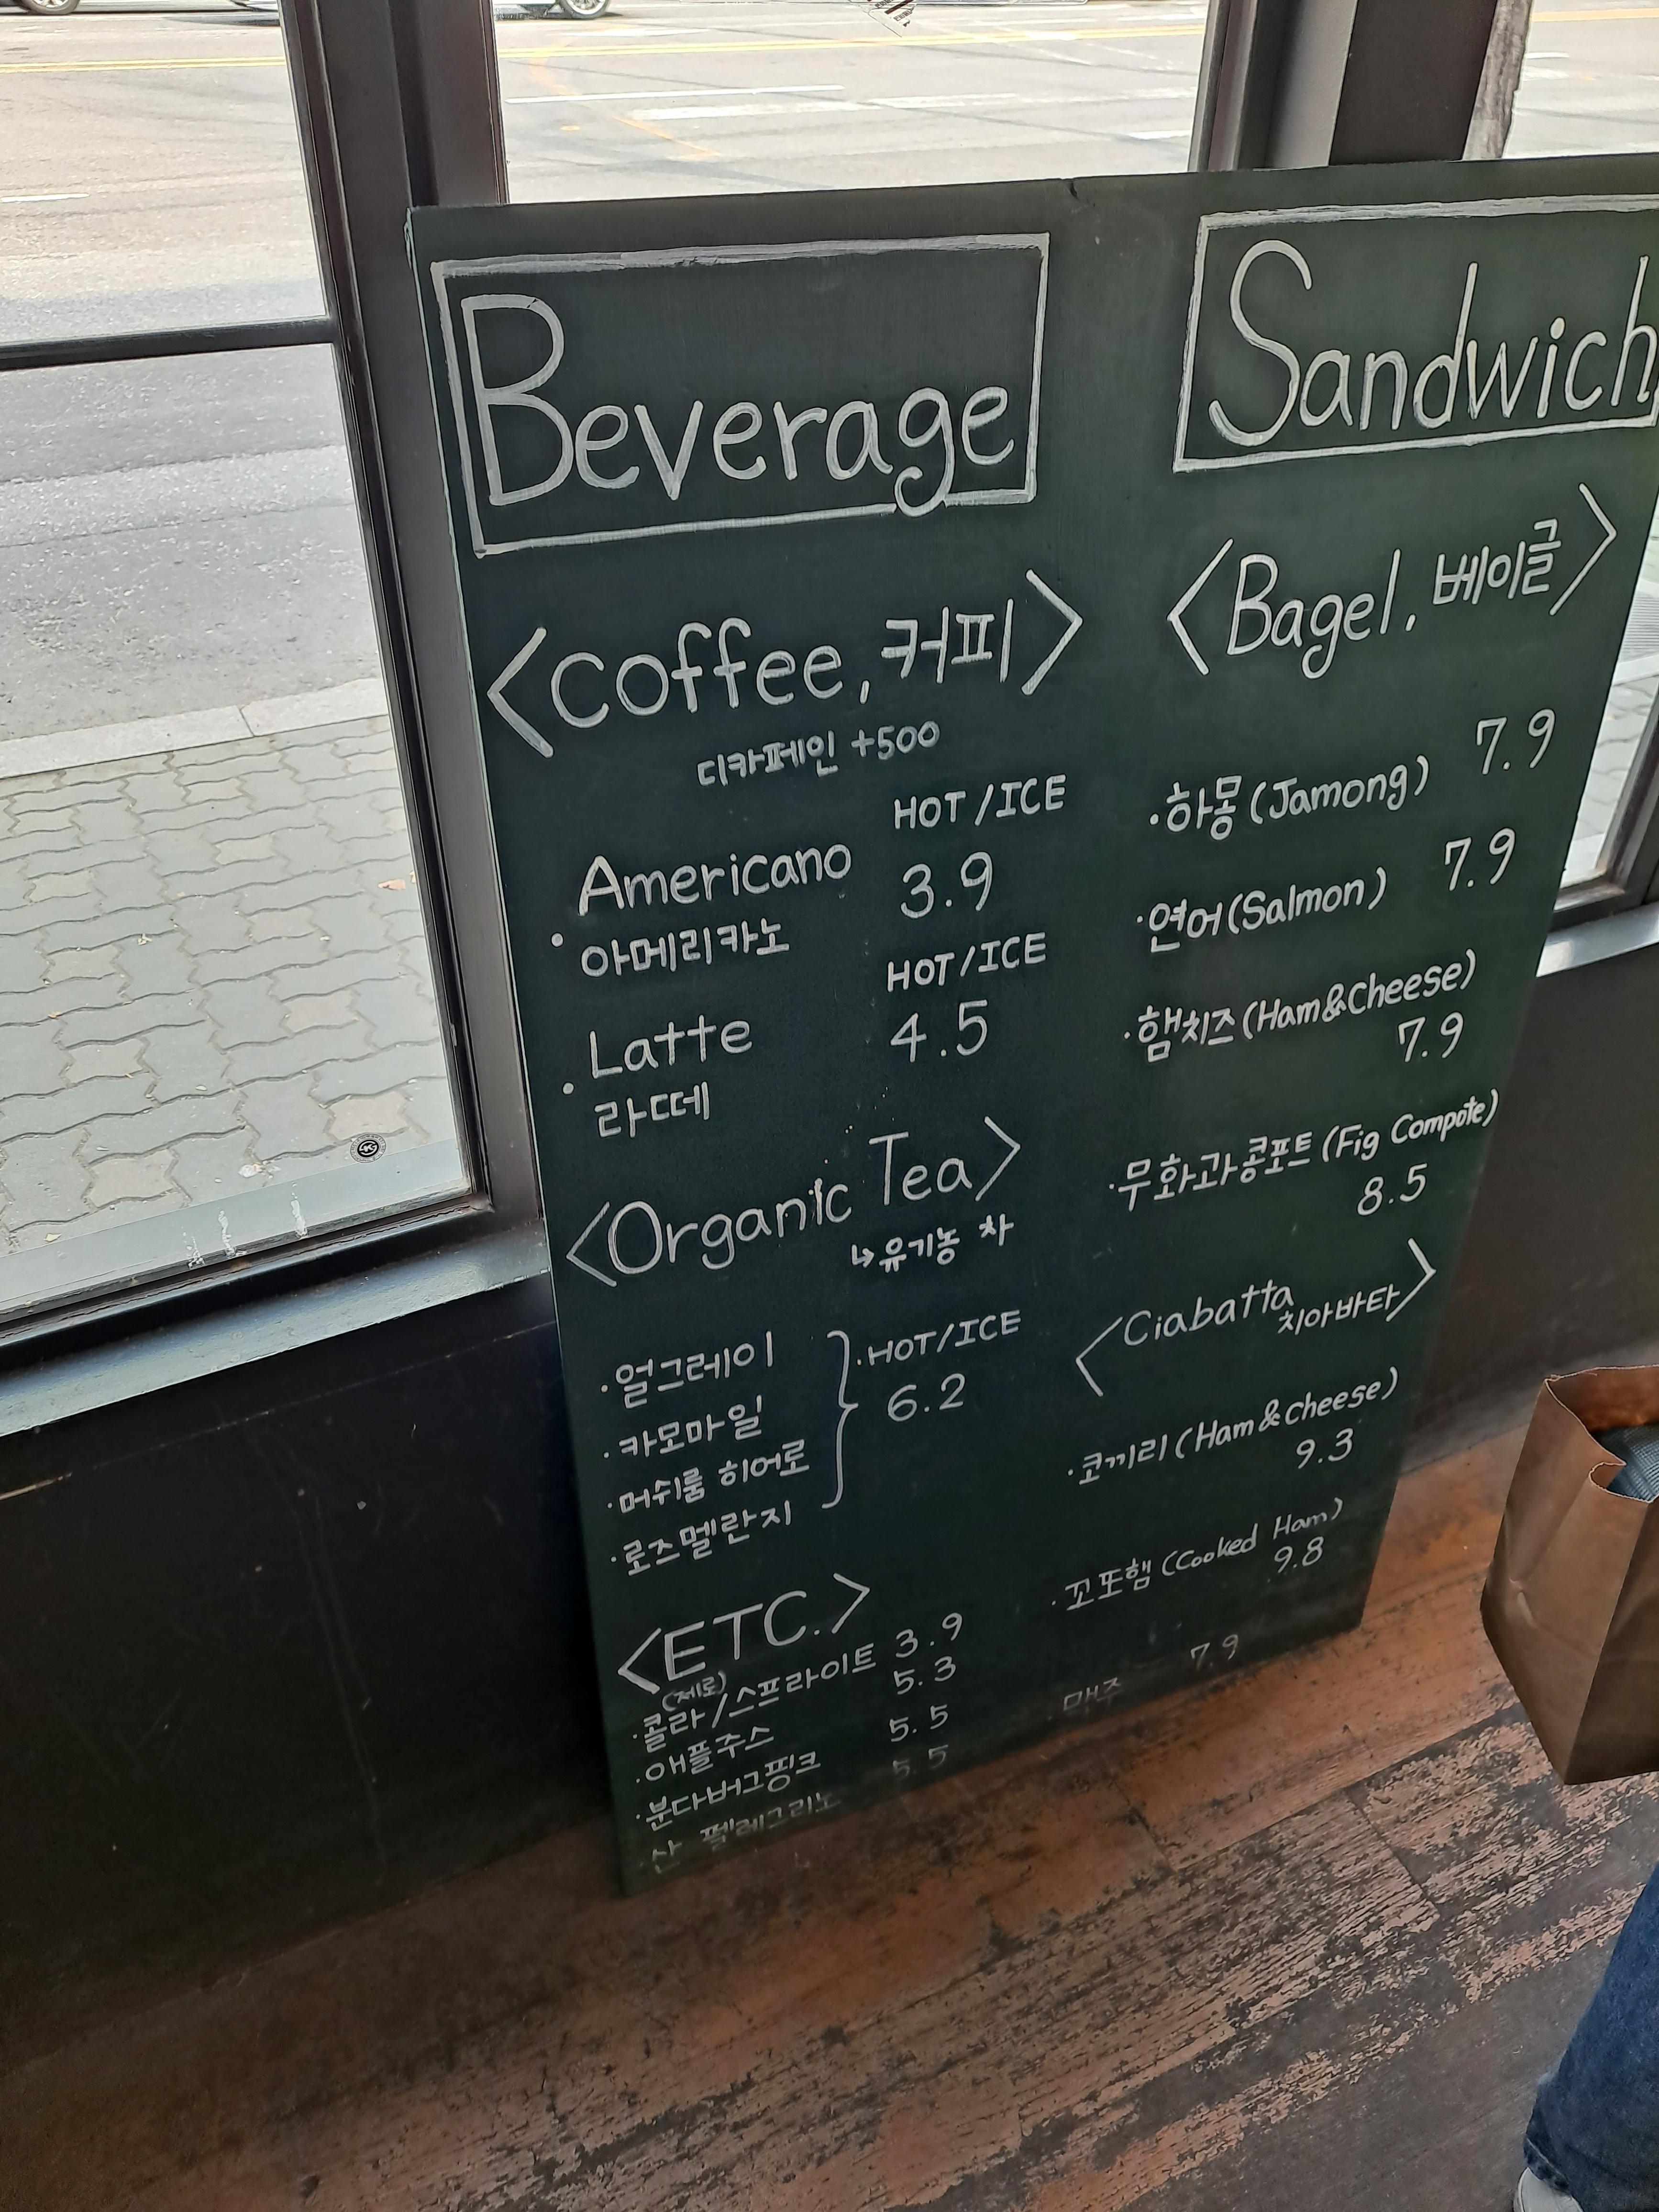 Beverage
<coffee, 커피>
디카페인 +500
HOT/ICE
Americano 3.9
·아메리카노
HOT/ICE
·Latte 4.5
라떼
<Organic Tea>
↳유기농 차
·얼그레이
·카모마일
·머쉬룸 히어로
·로즈멜란지
·HOT/ICE
6.2
<ETC.>
(제로)
·콜라/스프라이트 3.9
·애플주스 5.3
·분다버그핑크 5.5
산 펠레그리노 5.5
Sandwich
<Bagel. 베이글>
·하몽(Jamong) 7.9
·연어(Salmon) 7.9
·햄치즈(Ham&Cheese)
7.9
·무화과콩포트(Fig Compote)
8.5
<Ciabatta
치아바타>
·코끼리(Ham&cheese)
9.3
·꼬또햄(Cooked Ham)
9.8
맥주 7.9